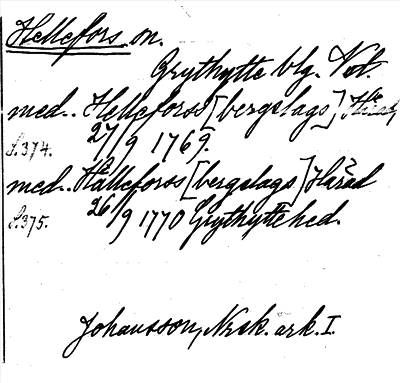 Hellefors. sn.
Grythytte blg. Vstl.
med.. Hellefors [bergslags] Härad
S.374. 27/9 1769.
med.. Hällefors [bergslags] Härad
S.375. 26/9 1770 Grythyttehed.
Johansson, Nrsk. ark. I.